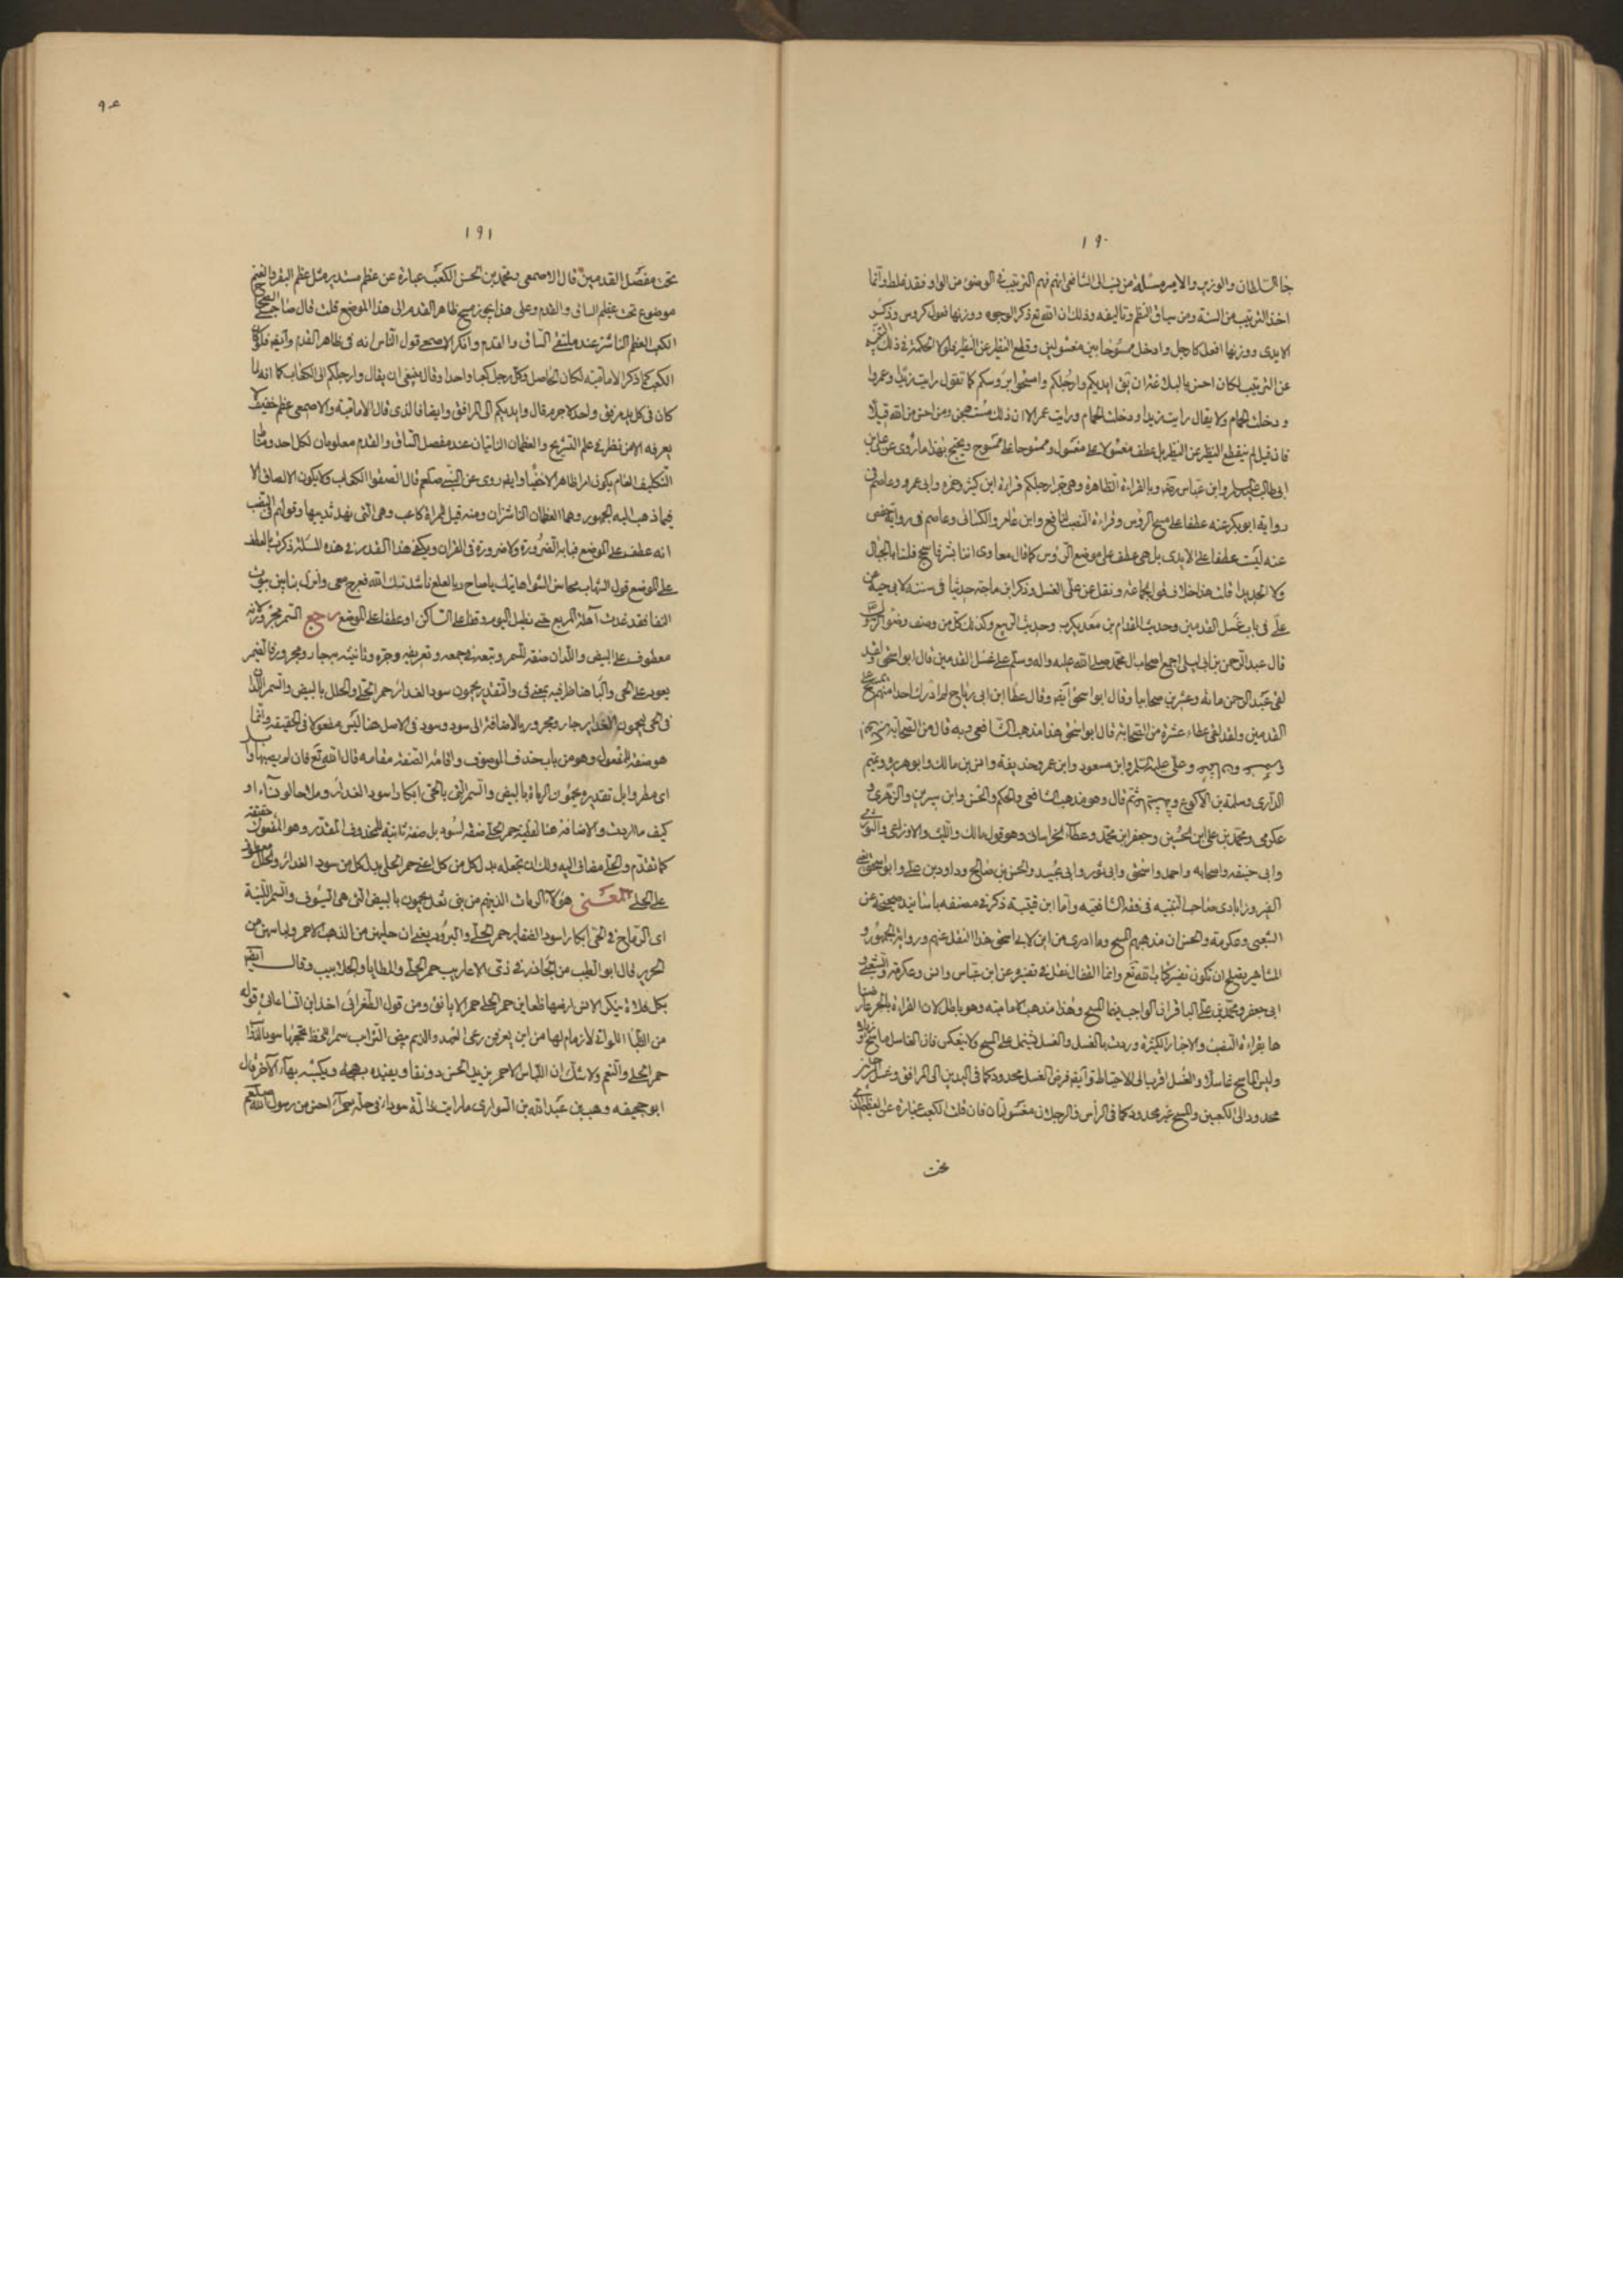 ١٩٠
جا السلطان والوزير والامير مسئلة من نسب الى الشافعى انه فهم الترتيب فى الوضوء من الواو فقد غلط وانما
اخذ الترتيب من السنة ومن سياق النظم وتاليفه وذلك ان الله تع ذكر الوجوه ووزنها فعول كروس وذكر
الايدى ووزنها افعل كارجل وادخل ممسوحا بين مغسولين وقطع النظير عن النظير فلولا الحكمة فى ذلك
عن الترتيب لكان احسن بالبلاغة ان يقال ايديكم وارجلكم وامسحوا بروسكم كما تقول رايت زيدا وعمروا
ودخلت الحمام ولا يقال رايت زيدا ودخلت الحمام ورايت عمرا لان ذلك مستهجن ومن احسن من الله قيلا
فان قيل لم ينقطع النظير عن النظير بل عطف مغسولا على مغسول وممسوحا على ممسوح ويحتج بهذا ما روى عن على بن
ابى طالب عليه السلام وابن عباس وبالقراءة الظاهرة وهى جر ارجلكم قراءة ابن كثير وحمزة وابى عمرو وعاصم فى
رواية ابو بكر عنه عطفا على مسح الروس وقراءة النصب لنافع وابن عامر والكسائى وعاصم فى رواية حفص
عنه ليست عطفا على الايدى بل هى عطف على موضع الروس كما قال معاوى اننا بشر فاسجح فلسنا بالجبال
ولا الحديدا قلت هذا خلاف قول الجماعة ونقل عن على الغسل وذكر ابن ماجه حديثا فى سننه لابى حية عن
على فى باب غسل القدمين وحديث المقدام بن معديكرب وحديث الربيع وكذلك كل من وصف وضوء
قال عبد الرحمن بن ابى ليلى اجمع اصحاب محمد صلى الله عليه واله وسلم على غسل القدمين قال ابو اسحق ولقد
لقى عبد الرحمن مائة وعشرين صحابيا وقال ابو اسحق ايضا وقال عطا ابن ابى رباح لم ادرك احدا منهم يمسح على
القدمين ولقد لقى عطاء عشرة من الصحابة قال ابو اسحق هذا مذهب الشافعى وبه قال من الصحابة
وعلى عليه السلم وابن مسعود وابن عمر وحذيفة وانس بن مالك وابو هريرة وتميم
الدارى وسلمة بن الاكوع قال وهو مذهب الشافعى والحكم والحسن وابن سيرين والزهرى و
عكرمى ومحمد بن على ابن الحسين وجعفر ابن محمد وعطاء الخراسانى وهو قول مالك والليث والاوزاعى والثورى
وابى حنيفه واصحابه واحمد واسحق وابى ثور وابى عبيد والحسن بن صالح وداود بن على وابو اسحق
الفيروزابادى صاحب التنبيه فى فقه الشافعيه واما ابن قتيبة ذكر فى مصنفه باسانيد صحيحة عن
الشعبى وعكرمة والحسن ان مذهبهم المسح وما ادرى من اين لابى اسحق هذا النقل عنهم ورواية الجمهور و
المشاهير يقبل ان تكون تفسير كتاب الله تع وانما القفال نقل فى تفسيره عن ابن عباس وانس وعكرمة والشعبى و
ابى جعفر محمد بن على الباقر ان الواجب فيها المسح وهذا مذهب الامامية وهو باطل لان القراءة بالجر
ها بقراءة النصب والاخبار الكثيرة وردت بالغسل والغسل يشتمل على المسح ولا ينعكس فان الغاسل ماسح
وليس الماسح غاسلا والغسل اقرب الى الاحتياط وايضا فرض الغسل محدود كما فى اليدين الى المرافق وغسل
محدود الى الكعبين والمسح غير محدود كما فى الراس فالرجلان مغسولتان فان قلت الكعب عبارة عن العظم
تحت
٩٤
١٩١
تحت مفصل القدمين قال الاصمعى ومحمد بن الحسن الكعب عبارة عن عظم مستدير مثل عظم البقر والغنم
موضوع تحت عظم الساق والقدم وعلى هذا يجوز مسح ظاهر القدم الى هذا الموضع قلت قال صاحب الصحاح
الكعب العظم الناشز عند ملتقى الساق والقدم وانكر الاصمعى قول الناس انه فى ظاهر القدم وايضا فلو كان
الكعب كما ذكر الامامية لكان الحاصل فى كل رجل كعبا واحدا وقال ينبغى ان يقال وارجلكم الى الكعاب كما انه لما
كان فى كل يد مرفق واحد لا جرم قال وايديكم الى المرافق وايضا فالذى قال الامامية والاصمعى عظم خفى لا
يعرفه الا من نظر فى علم التشريح والعظمان الناتيان عند مفصل الساق والقدم معلومان لكل احد ومناط
التكليف العام يكون امرا ظاهرا لا خفيا وايضا روى عن النبى صلعم قال الصقوا الكعاب ولا يكون الالصاق الا
فيما ذهب اليه الجمهور وهما العظمان الناشزان ومنه قيل امراة كاعب وهى التى نهد ثدييها وقولهم فى النصب
انه عطف على الموضع فبابه الضرورة ولا ضرورة فى القران ويكفى هذا القدر فى هذه المسئلة ذكرت بالعطف
على الموضع قول الشهاب محاسن الشوا هاتيك ياصاح ربا لعلع ناشدتك الله فعرج معى وانزل بنا بين بيوت
النقا فقد غدت آهلة المربع حتى نطيل اليوم وقفا على الساكن او عطفا على الموضع رجع السمر مجرور لانه
معطوف على البيض واللدان صفة للسمر وتبعه فى جمعه وتعريفه وجره وثانيثه به جار ومجرور فالضمير
يعود على الحى والبا هنا ظرفيه بمعنى فى والتقدير يحمون سود الغدائر حمر الحلى والحلل بالبيض والسمر اللدان
فى الحى يحمون الغداير جار ومجرور بالاضافة الى سود وسود فى الاصل هنا ليس مفعولا فى الحقيقه وانما
هو صفة المفعول وهو من باب حذف الموصوف واقامة الصفة مقامه قال الله تع فان لم يصبها وابل
اى مطر وابل تقديره يحمون الرماة بالبيض والسمر التى بالحى ابكارا سود الغدائر وملاحا او نساء او
كيف ما اردت والاضافة هنا لفظية حمر الحلى صفة لسود بل صفة ثانية للمحذوف المقدر وهو المفعول حقيقة
كما تقدم والحلى مضاف اليه ولك ان تجعله بدل كل من كل اعنى حمر الحلى بدل كل من سود الغدائر والحلل معطوف
على الحلى المعنى هولاء الرماة الذين هم من بنى ثعل يحمون بالبيض التى هى السيوف والسمر اللينة
اى الرماح فى الحى ابكارا سود الضفاير حمر الحلى والبرود يعنى ان حليهن من الذهب الاحمر ولباسهن من
الحرير قال ابو الطيب من الجاذر فى زى الاعاريب حمر الحلى والمطايا والجلابيب وقال ايضا
بكل فلاة ينكر الانس ارضها ظعاين حمر الحلى حمر الايانق ومن قول الطغرائى اخذ ابن الساعاتى قوله
من الظبا اللواتى لا زمام لها من اين يعرفن رعى العهد والذمم بيض الترائب سمر الحظ تحجبها سود الذوا
حمر الحلى والنعم ولا شك ان اللباس الاحمر يزيد الحسن رونقا ويفيده بهجة ويكسبه بهاء الآخر قال
ابو جحيفه وهب بن عبد الله بن السوارى ما رايت ذا لمة سوداء فى حلة حمراء احسن من رسول الله صلعم